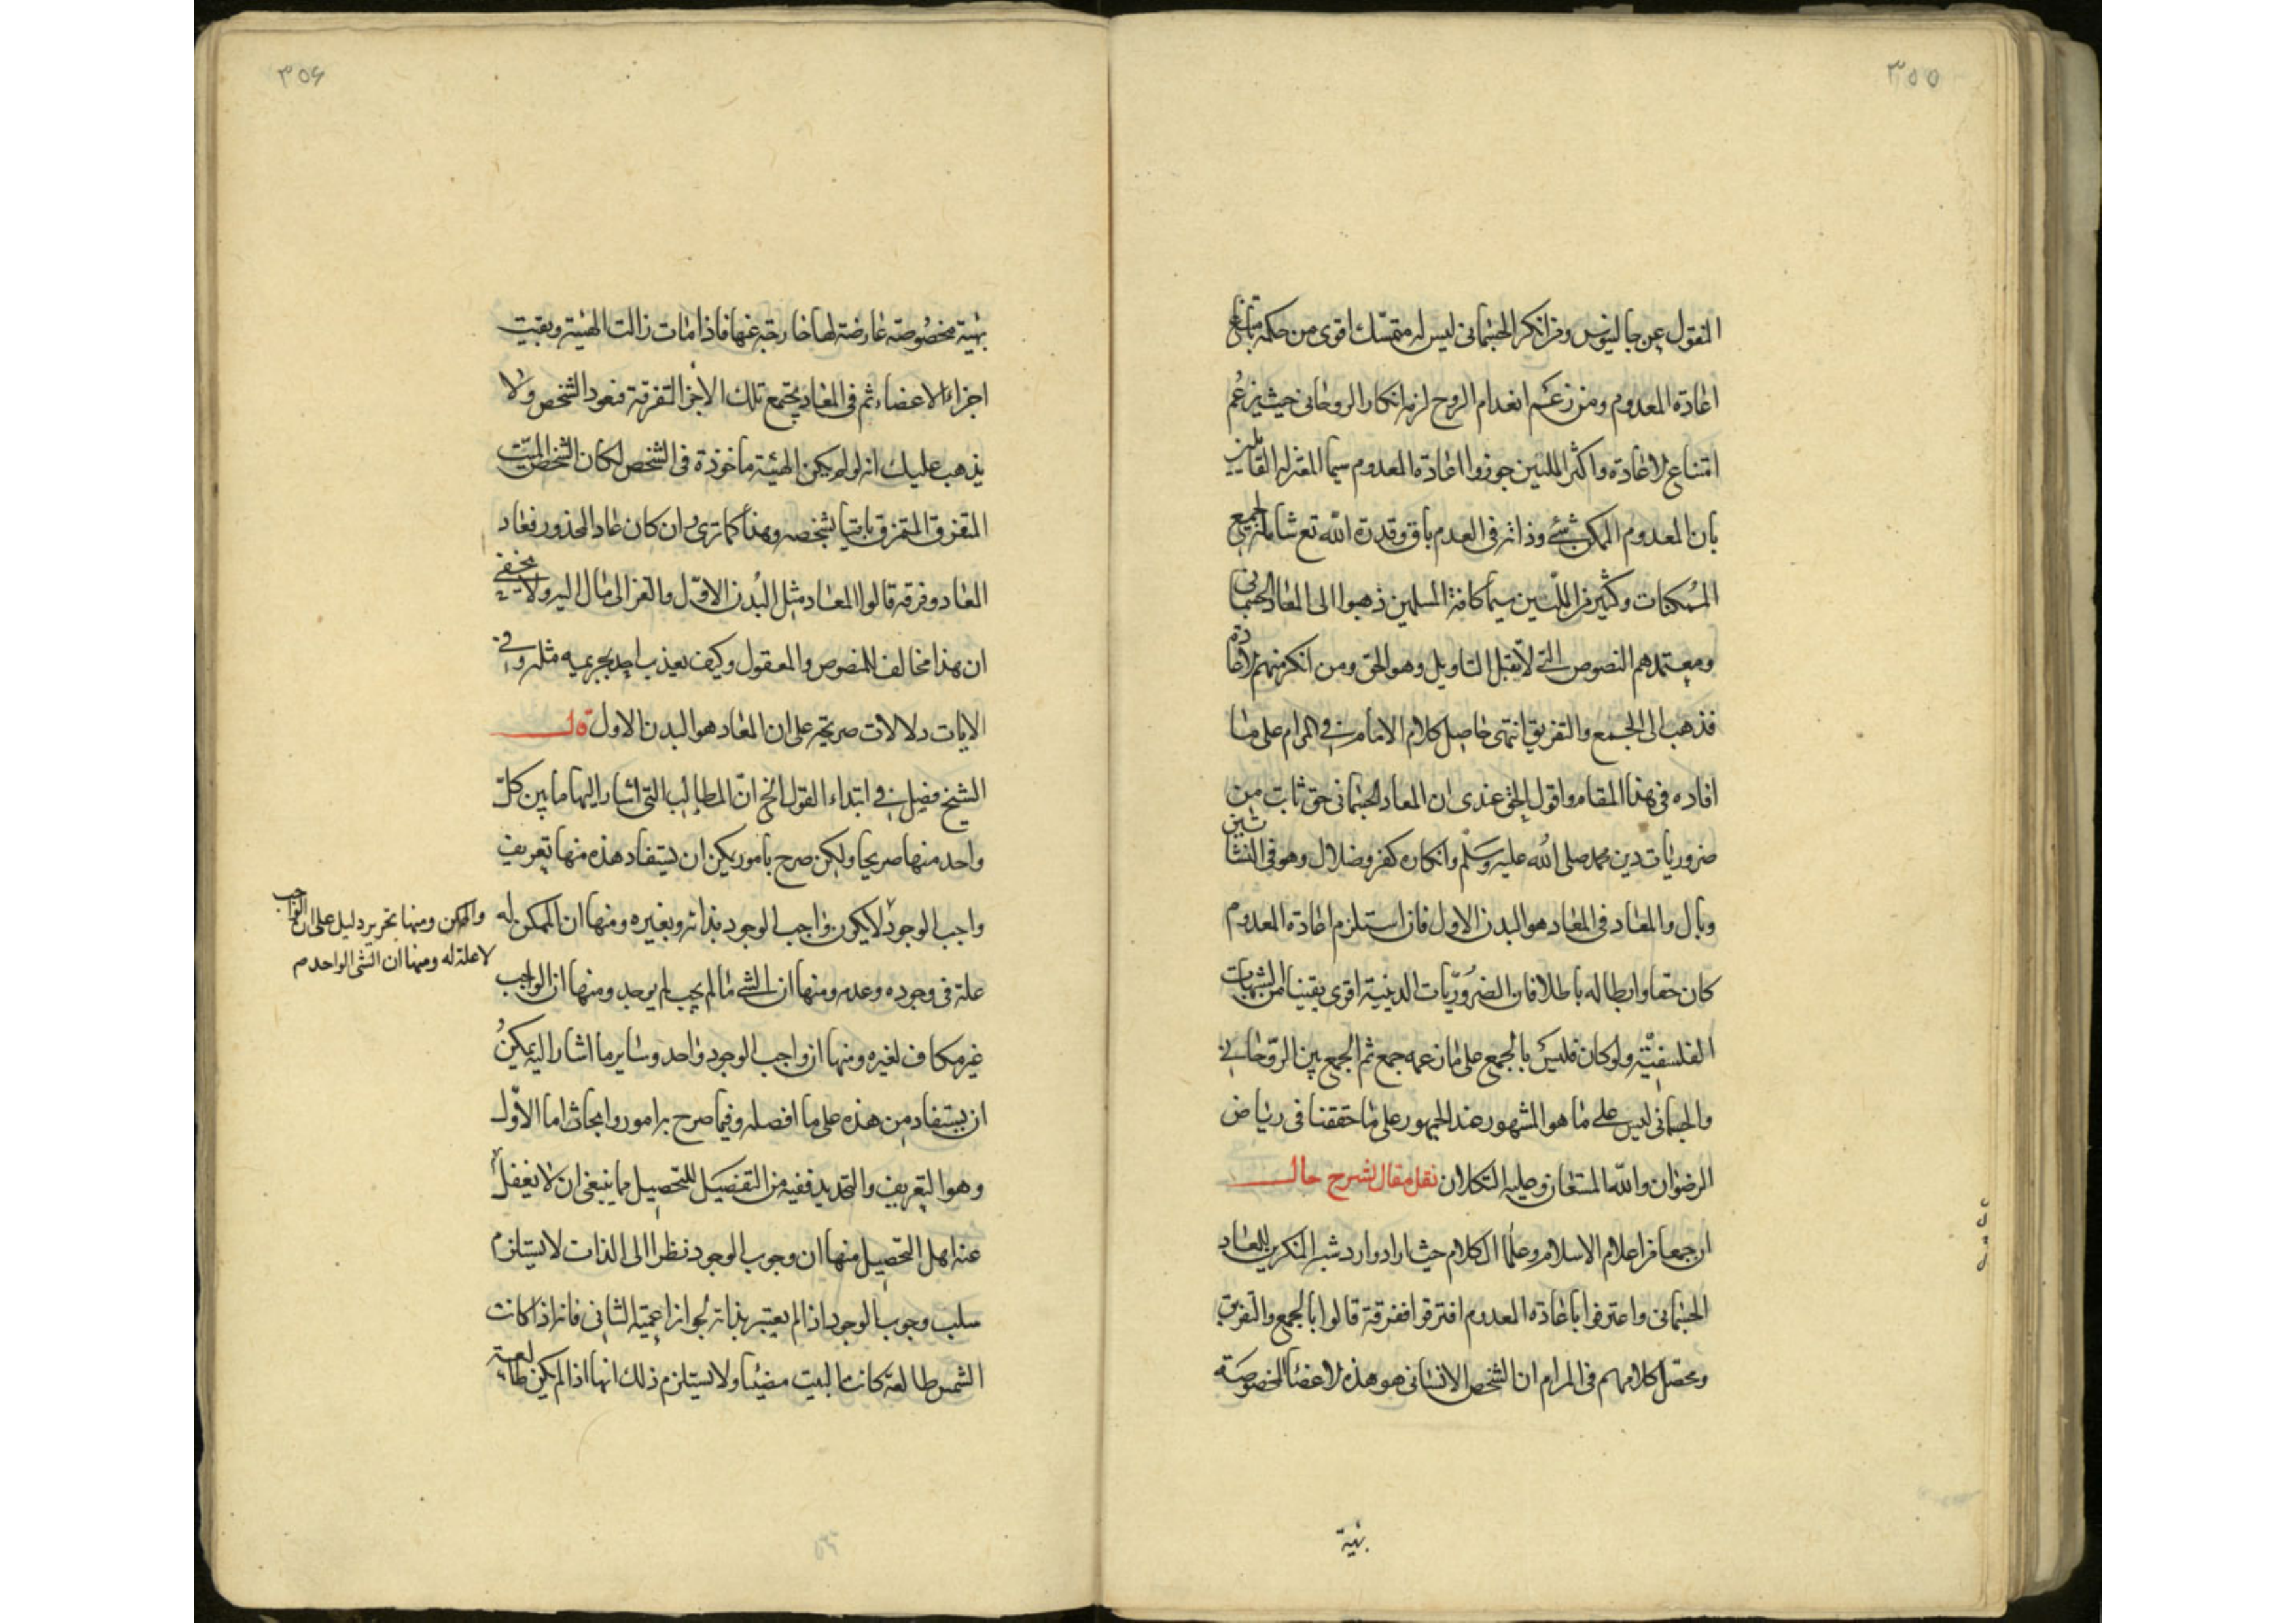 ٣٥٥
المنقول عن جالينوس ومن انكر الجسمانى ليس له متمسك اقوى من حكمه بامتناع
اعادة المعدوم ومن زعم انعدام الروح لزمه انكار الروحانى حيث يزعم
امتناع الاعادة واكثر المليين جوزوا اعادة المعدوم سيما المعتزلة القايلين
بان المعدوم الممكن شئ وذاته فى العدم باق وقدرة الله تع شاملة لجميع
الممكنات وكثير من المليين سيما كافة المسلمين ذهبوا الى المعاد الجسمانى
ومعتمدهم النصوص التى لا تقبل التاويل وهو الحق ومن انكر منهم الاعادة
فذهب الى الجمع والتفريق انتهى حاصل كلام الامام فى المرام على ما
افاده فى هذا المقام واقول الحق عندى ان المعاد الجسمانى حق ثابت من
ضروريات دين محمد صلى الله عليه وسلم وانكاره كفر وضلال وهو فى النشاتين
وبال والمعاد فى المعاد هو البدن الاول فان استلزم اعادة المعدوم
كان حقا وابطاله باطلا فان الضروريات الدينية اقوى يقينا من الشبهات
الفلسفية ولو كان فليس بالجمع على ما زعمه جمع ثم الجمع بين الروحانى
والجسمانى ليس على ما هو المشهور عند الجمهور على ما حققنا فى رياض
الرضوان والله المستعان وعليه التكلان نقل مقال لشرح حال
ان جمعا من اعلام الاسلام وعلما الكلام حيث ارادوا رد شبه المنكرين للمعاد
الجسمانى واعترفوا باعادة المعدوم افترقوا ففرقة قالوا بالجمع والتفريق
ومحصل كلامهم فى المرام ان الشخص الانسانى هو هذه الاعضا المخصوصة
بهيئة
٣٥۶
بهيئة مخصوصة عارضة لها خارجة عنها فاذا مات زالت الهيئة وبقيت
اجزاء الاعضاء ثم فى المعاد يجتمع تلك الاجزا المتفرقة فيعود الشخص ولا
يذهب عليك انه لو لم يكن الهيئة ماخوذة فى الشخص لكان الشخص الميت
المتفرق المتمزق باقيا بشخصه وهذا كما ترى وان كان عاد المحذور فعاد
المعاد وفرقة قالوا المعاد مثل البدن الاول والغزالى مال اليه ولا يخفى
ان هذا مخالف للنصوص والمعقول وكيف يعذب احد بجريمة مثله وفى
الايات دلالات صريحة على ان المعاد هو البدن الاول قال
الشيخ فصل فى ابتداء القول الخ ان المطالب التى اشار اليها ما بين كل
واحد منها صريحا ولكن صرح بامور يمكن ان يستفاد هذه منها تعريف
واجب الوجود لا يكون واجب الوجود بذاته وبغيره ومنها ان الممكن له
والممكن ومنها تحرير دليل على ان الواجب
لا علة له ومنها ان الشئ الواحد م
علة فى وجوده وعدمه ومنها ان الشئ ما لم يجب لم يوجد ومنها ان الواجب
غير مكاف لغيره ومنها ان واجب الوجود واحد وساير ما اشار اليه يمكن
ان يستفاد من هذه على ما افصله وفيما صرح به امور وابحاث اما الاول
وهو التعريف والتحديد ففيه من التفصيل للتحصيل ما ينبغى ان لا يغفل
عنه اهل التحصيل منها ان وجوب الوجود نظرا الى الذات لا يستلزم
سلب وجوب الوجود اذا لم يعتبر بذاته لجواز اعمية الثانى فانه اذا كانت
الشمس طالعة كانت البيت مضيئا ولا يستلزم ذلك انها اذا لم يكن طالعة